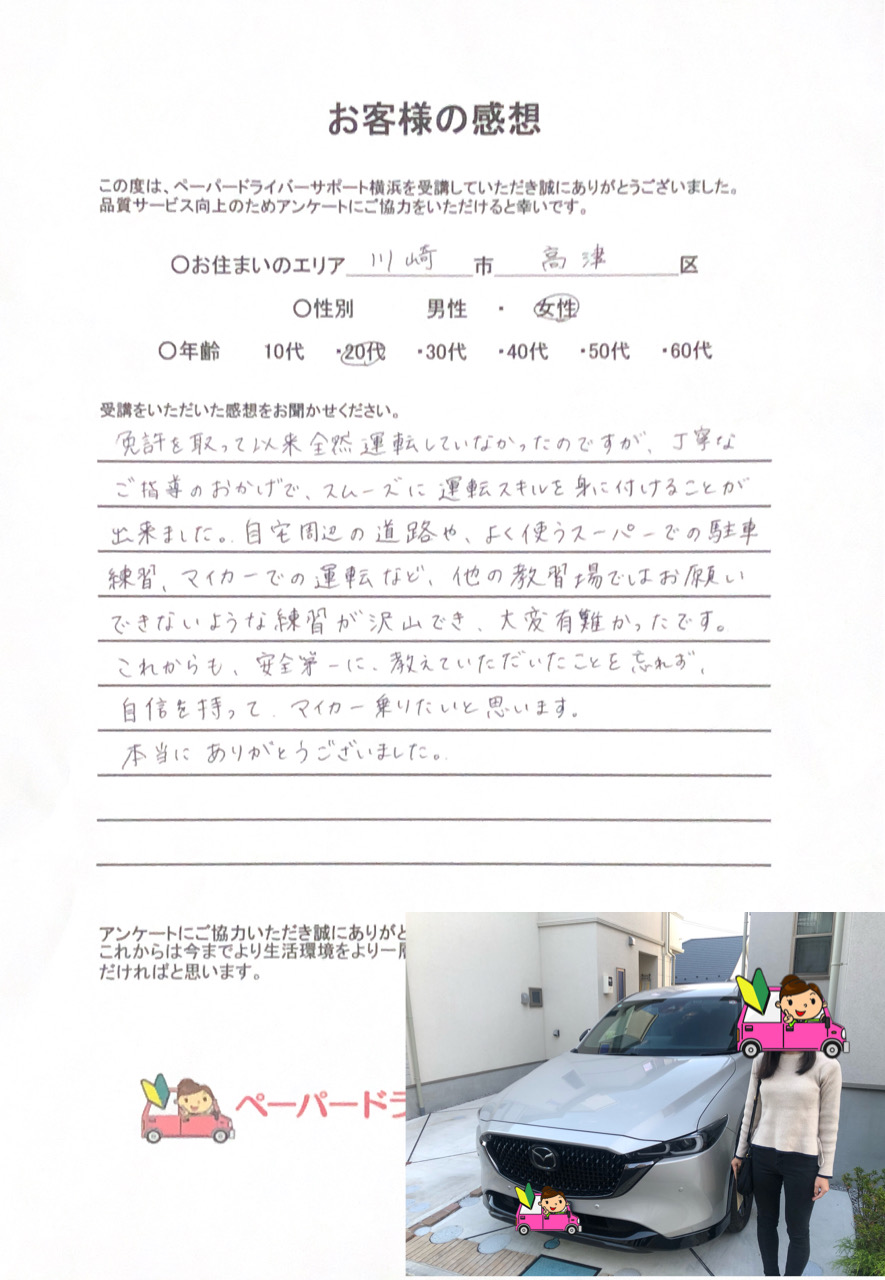 お客様の感想
この度は、ペーパードライバーサポート横浜を受講していただき誠にありがとうございました。
品質サービス向上のためアンケートにご協力をいただけると幸いです。
〇お住まいのエリア 川崎 市 高津 区
〇性別 男性 ・ 女性
〇年齢 10代 ・20代 ・30代 ・40代 ・50代 ・60代
受講をいただいた感想をお聞かせください。
免許を取って以来全然運転していなかったのですが、丁寧な
ご指導のおかげで、スムーズに運転スキルを身に付けることが
出来ました。自宅周辺の道路や、よく使うスーパーでの駐車
練習、マイカーでの運転など、他の教習場ではお願い
できないような練習が沢山でき、大変有難かったです。
これからも、安全第一に、教えていただいたことを忘れず、
自信を持って、マイカー乗りたいと思います。
本当にありがとうございました。
アンケートにご協力いただき誠にありがと
これからは今までより生活環境をより一層
だければと思います。
ペーパードラ